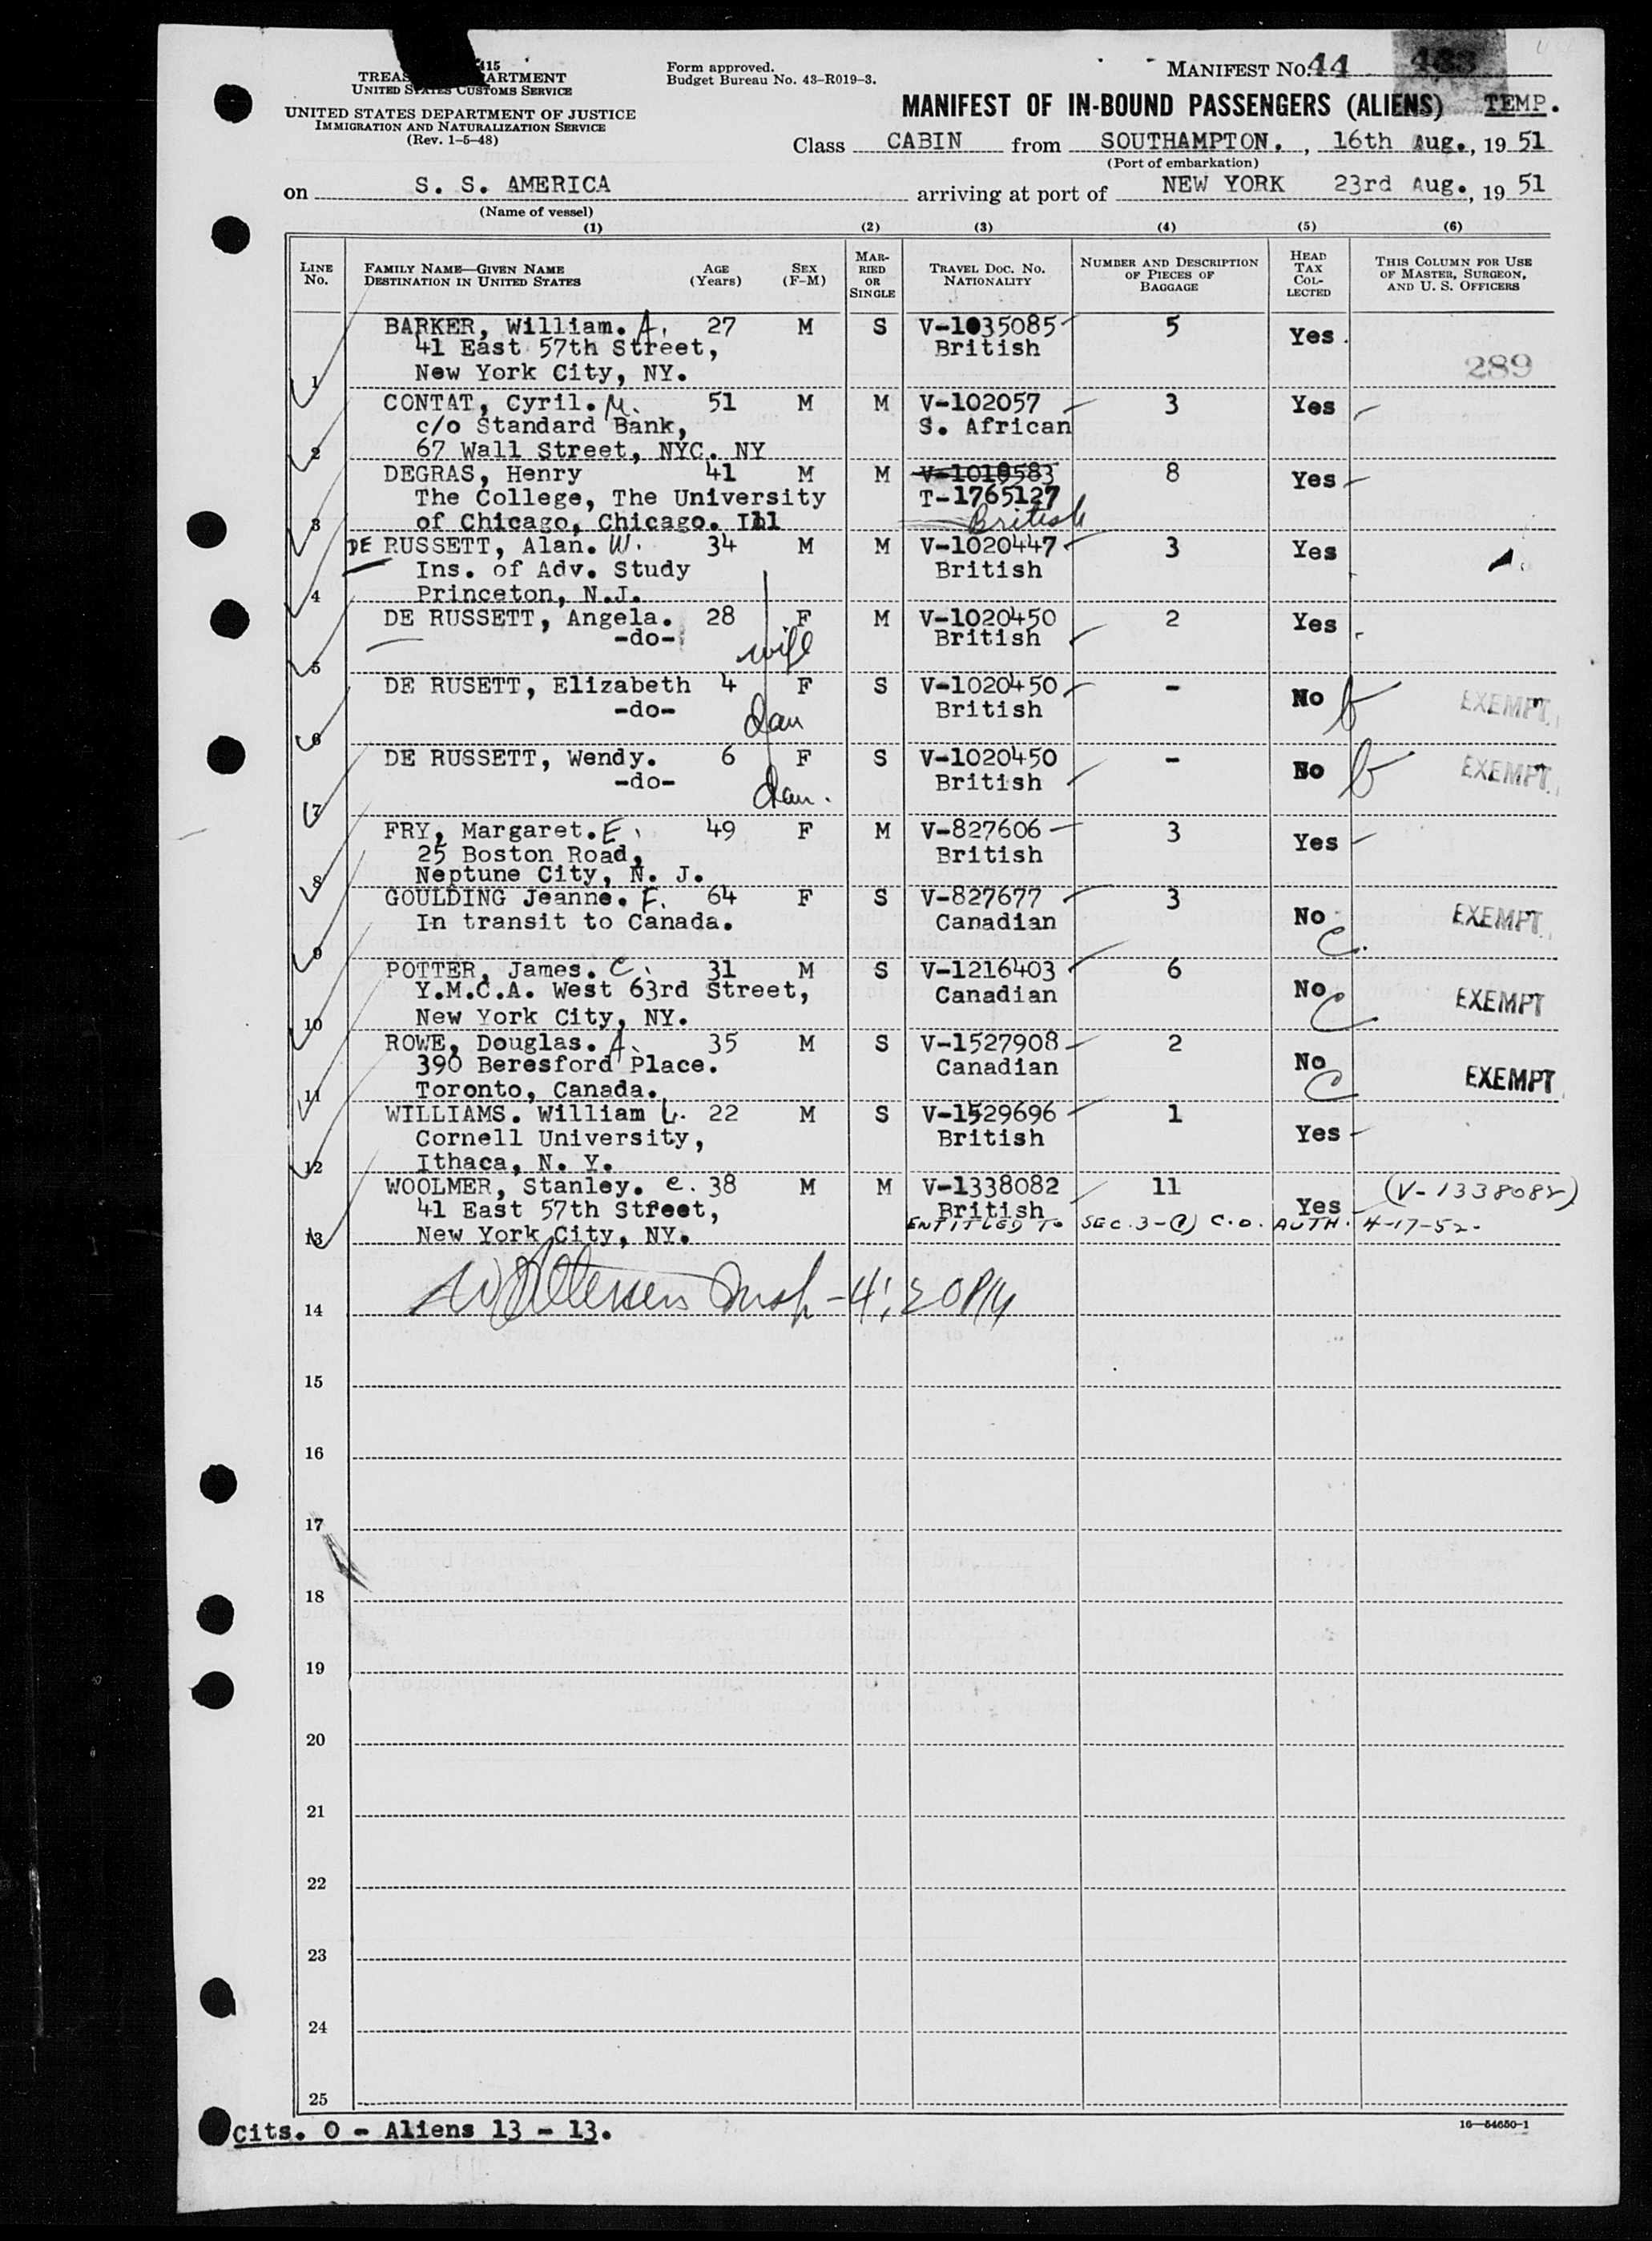 415
TREAS ARTMENT
UNITED STATES CUSTOMS SERVICE
UNITED STATES DEPARTMENT OF JUSTICE
IMMIGRATION AND NATURALIZATION SERVICE
(Rev. 1-5-48)
Form approved.
Budget Bureau No. 43-R019-3.
MANIFEST No. 44 433
MANIFEST OF IN-BOUND PASSENGERS (ALIENS) TEMP.
Class CABIN from SOUTHAMPTON. , 16th Aug., 19 51
(Port of embarkation)
on S. S. AMERICA arriving at port of NEW YORK 23rd Aug., 19 51
(Name of vessel)
(1) (2) (3) (4) (5) (6)
LINE No. FAMILY NAME—GIVEN NAME DESTINATION IN UNITED STATES AGE (Years) SEX (F-M) MARRIED OR SINGLE TRAVEL DOC. NO. NATIONALITY NUMBER AND DESCRIPTION OF PIECES OF BAGGAGE HEAD TAX COLLECTED THIS COLUMN FOR USE OF MASTER, SURGEON, AND U. S. OFFICERS
BARKER, William. A. 27 M S V-1035085 5 Yes
41 East 57th Street, British
1 New York City, NY. 289
CONTAT, Cyril. M. 51 M M V-102057 3 Yes
c/o Standard Bank, S. African
2 67 Wall Street, NYC. NY
DEGRAS, Henry 41 M M V-1019583 8 Yes
The College, The University T-1765127
3 of Chicago, Chicago. Ill British
DE RUSSETT, Alan. W. 34 M M V-1020447 3 Yes
Ins. of Adv. Study British
4 Princeton, N.J.
DE RUSSETT, Angela. 28 F M V-1020450 2 Yes
-do- wife British
5
DE RUSETT, Elizabeth 4 F S V-1020450 - No b EXEMPT
-do- dau British
6
DE RUSSETT, Wendy. 6 F S V-1020450 - No b EXEMPT
-do- dau. British
7
FRY, Margaret. E. 49 F M V-827606 3 Yes
25 Boston Road, British
8 Neptune City, N. J.
GOULDING Jeanne. F. 64 F S V-827677 3 No C. EXEMPT
In transit to Canada. Canadian
9
POTTER, James. C. 31 M S V-1216403 6 No C EXEMPT
Y.M.C.A. West 63rd Street, Canadian
10 New York City, NY.
ROWE, Douglas. A. 35 M S V-1527908 2 No C EXEMPT
390 Beresford Place. Canadian
11 Toronto, Canada.
WILLIAMS. William L. 22 M S V-1529696 1 Yes
Cornell University, British
12 Ithaca, N. Y.
WOOLMER, Stanley. C. 38 M M V-1338082 11 Yes (V-1338082)
41 East 57th Street, British
13 New York City, NY. ENTITLED TO SEC. 3-(1) C.O. AUTH. 4-17-52.
14 Insp - 4:20 PM
15
16
17
18
19
20
21
22
23
24
25
Cits. 0 - Aliens 13 - 13.
16—54650-1